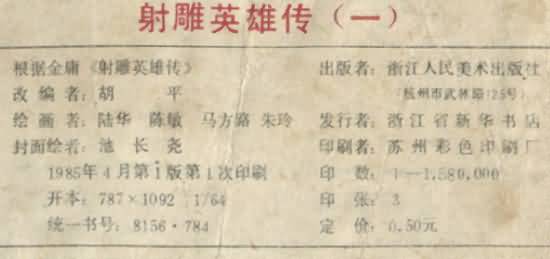 射雕英雄传（一）
根据金庸《射雕英雄传》
改编者：胡 平
绘画者：陆华 陈敏 马方路 朱玲
封面绘者：池长尧
1985年4月第1版第1次印刷
开本：787×1092 1/64
统一书号：8156·784
出版者：浙江人民美术出版社
（杭州市武林路125号）
发行者：浙江省新华书店
印刷者：苏州彩色印刷厂
印 数：1—1,580,000
印 张：3
定 价：0.50元